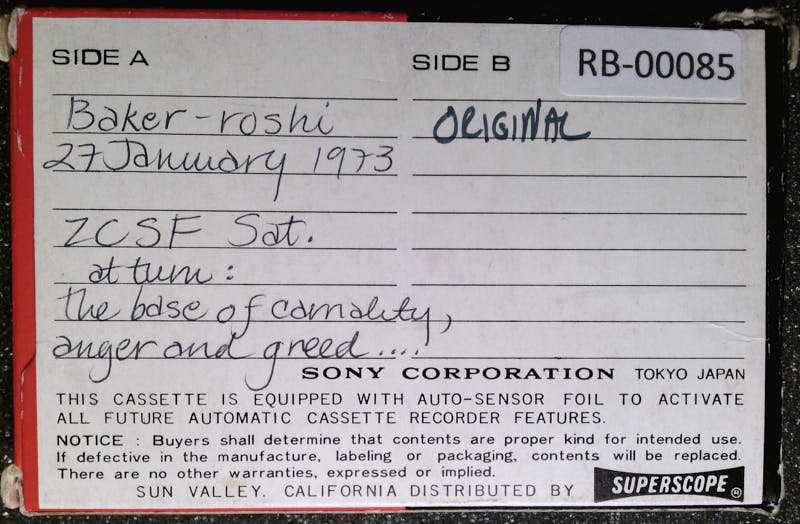 SIDE A
Baker-roshi
27 January 1973
ZCSF Sat.
at turn:
the base of carnality,
anger and greed....
SIDE B
RB-00085
ORIGINAL
SONY CORPORATION TOKYO JAPAN
THIS CASSETTE IS EQUIPPED WITH AUTO-SENSOR FOIL TO ACTIVATE
ALL FUTURE AUTOMATIC CASSETTE RECORDER FEATURES.
NOTICE : Buyers shall determine that contents are proper kind for intended use.
If defective in the manufacture, labeling or packaging, contents will be replaced.
There are no other warranties, expressed or implied.
SUN VALLEY. CALIFORNIA DISTRIBUTED BY SUPERSCOPE®